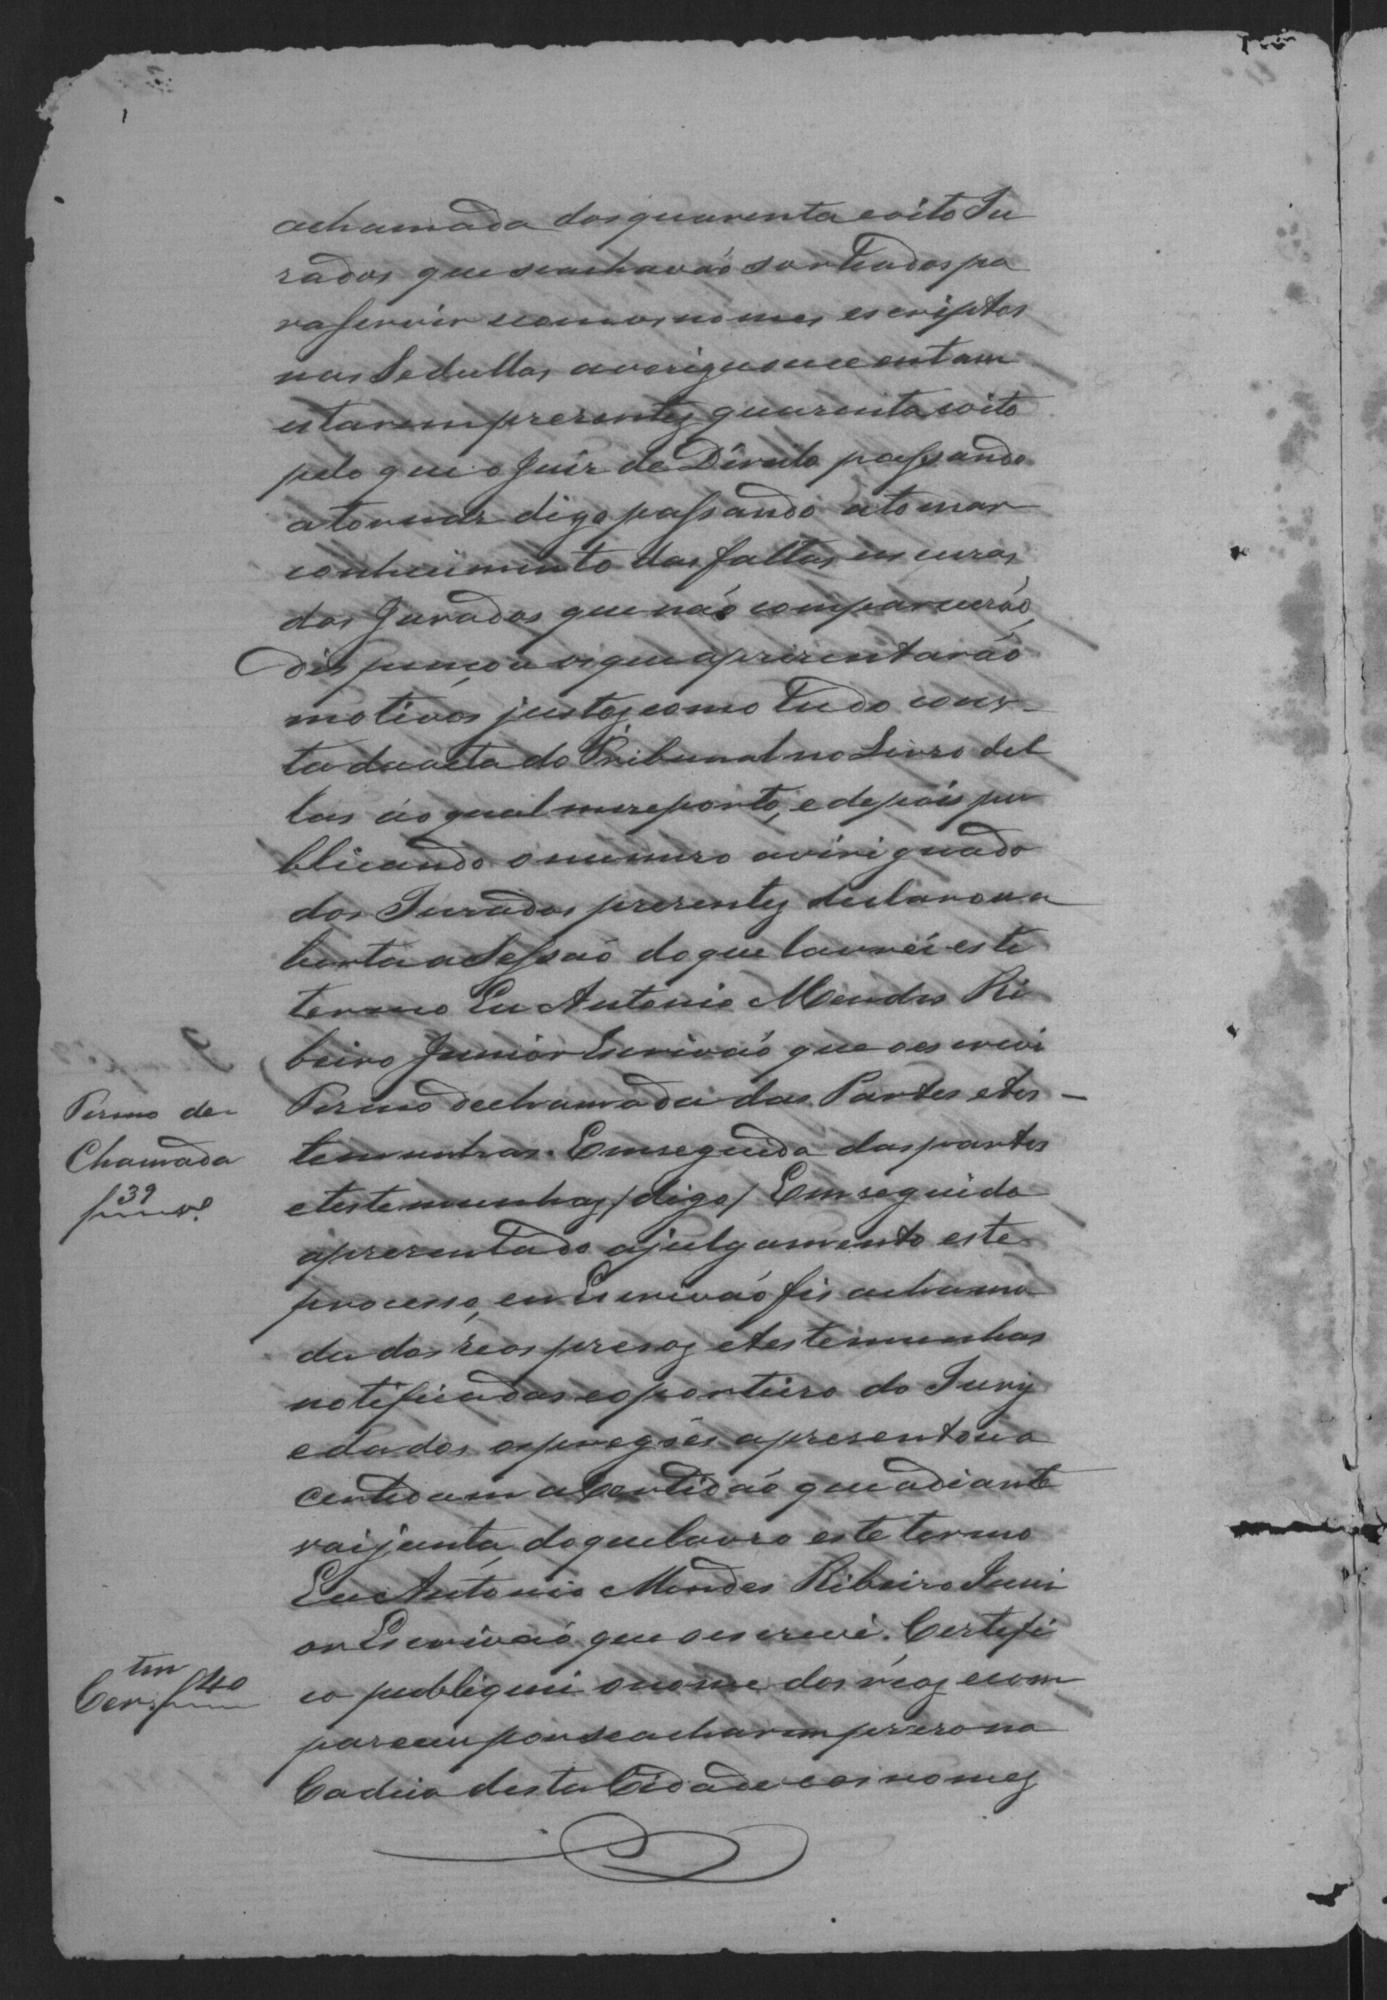 achamada dos quarenta e oito Ju
rados que se achavaõ sorteados pa
ra servir e com os nomes escriptos
nas Sedullas, averiguou e contam
estarem presentes quarenta e oito
pelo que o Juiz de Direito passando
a tomar digo passando a tomar
conhecimento das faltas, escusas,
dos Jurados que não comparecerão,
dispençou os que apresentarão
motivos justos, como tudo cons-
ta da acta do Tribunal no Livro del
las ao qual me reporto, e depois pu
blicando o numero averiguado
dos Jurados presentes declarou a
berta a Sessaõ do que lavrei este
termo Eu Antonio Mendes Ri
beiro Junior Escrivaõ que o escrevi
Termo de chamada das Partes e tes-
temunhas. Em seguida das partes
e testemunhas /digo/ Em seguida
apresentado a julgamento este
processo, eu Escrivaõ fis achama
da dos réos presos e testemunhas
notificadas e o porteiro do Jury
e dados os pregões apresentou a
certidam a Certidaõ que adiante
vai junta, do que lavro este termo
Eu Antonio Mendes Ribeiro Juni
or Escrivaõ que o escrevi. Certifi
co publiquei o nome dos réos e com
pareceu por se acharem preso na
Cadeia desta Cidade e os nomes
Termo de
Chamada
39
Cer.tm f 40